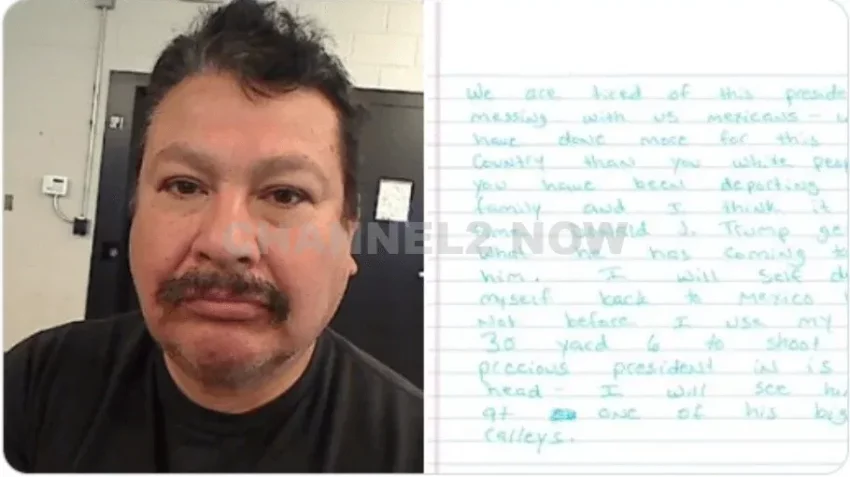 We are tired of this preside
messing with us mexicans - w
have done more for this
Country than you white peop
you have been deporting
family and I think it
time Donald J. Trump ge
what he has coming to
him. I will self de
myself back to Mexico
Not before I use my
30 yard 6 to shoot
precious president in is
head - I will see hi
at one of his big
ralleys.
CHANNEL2 NOW